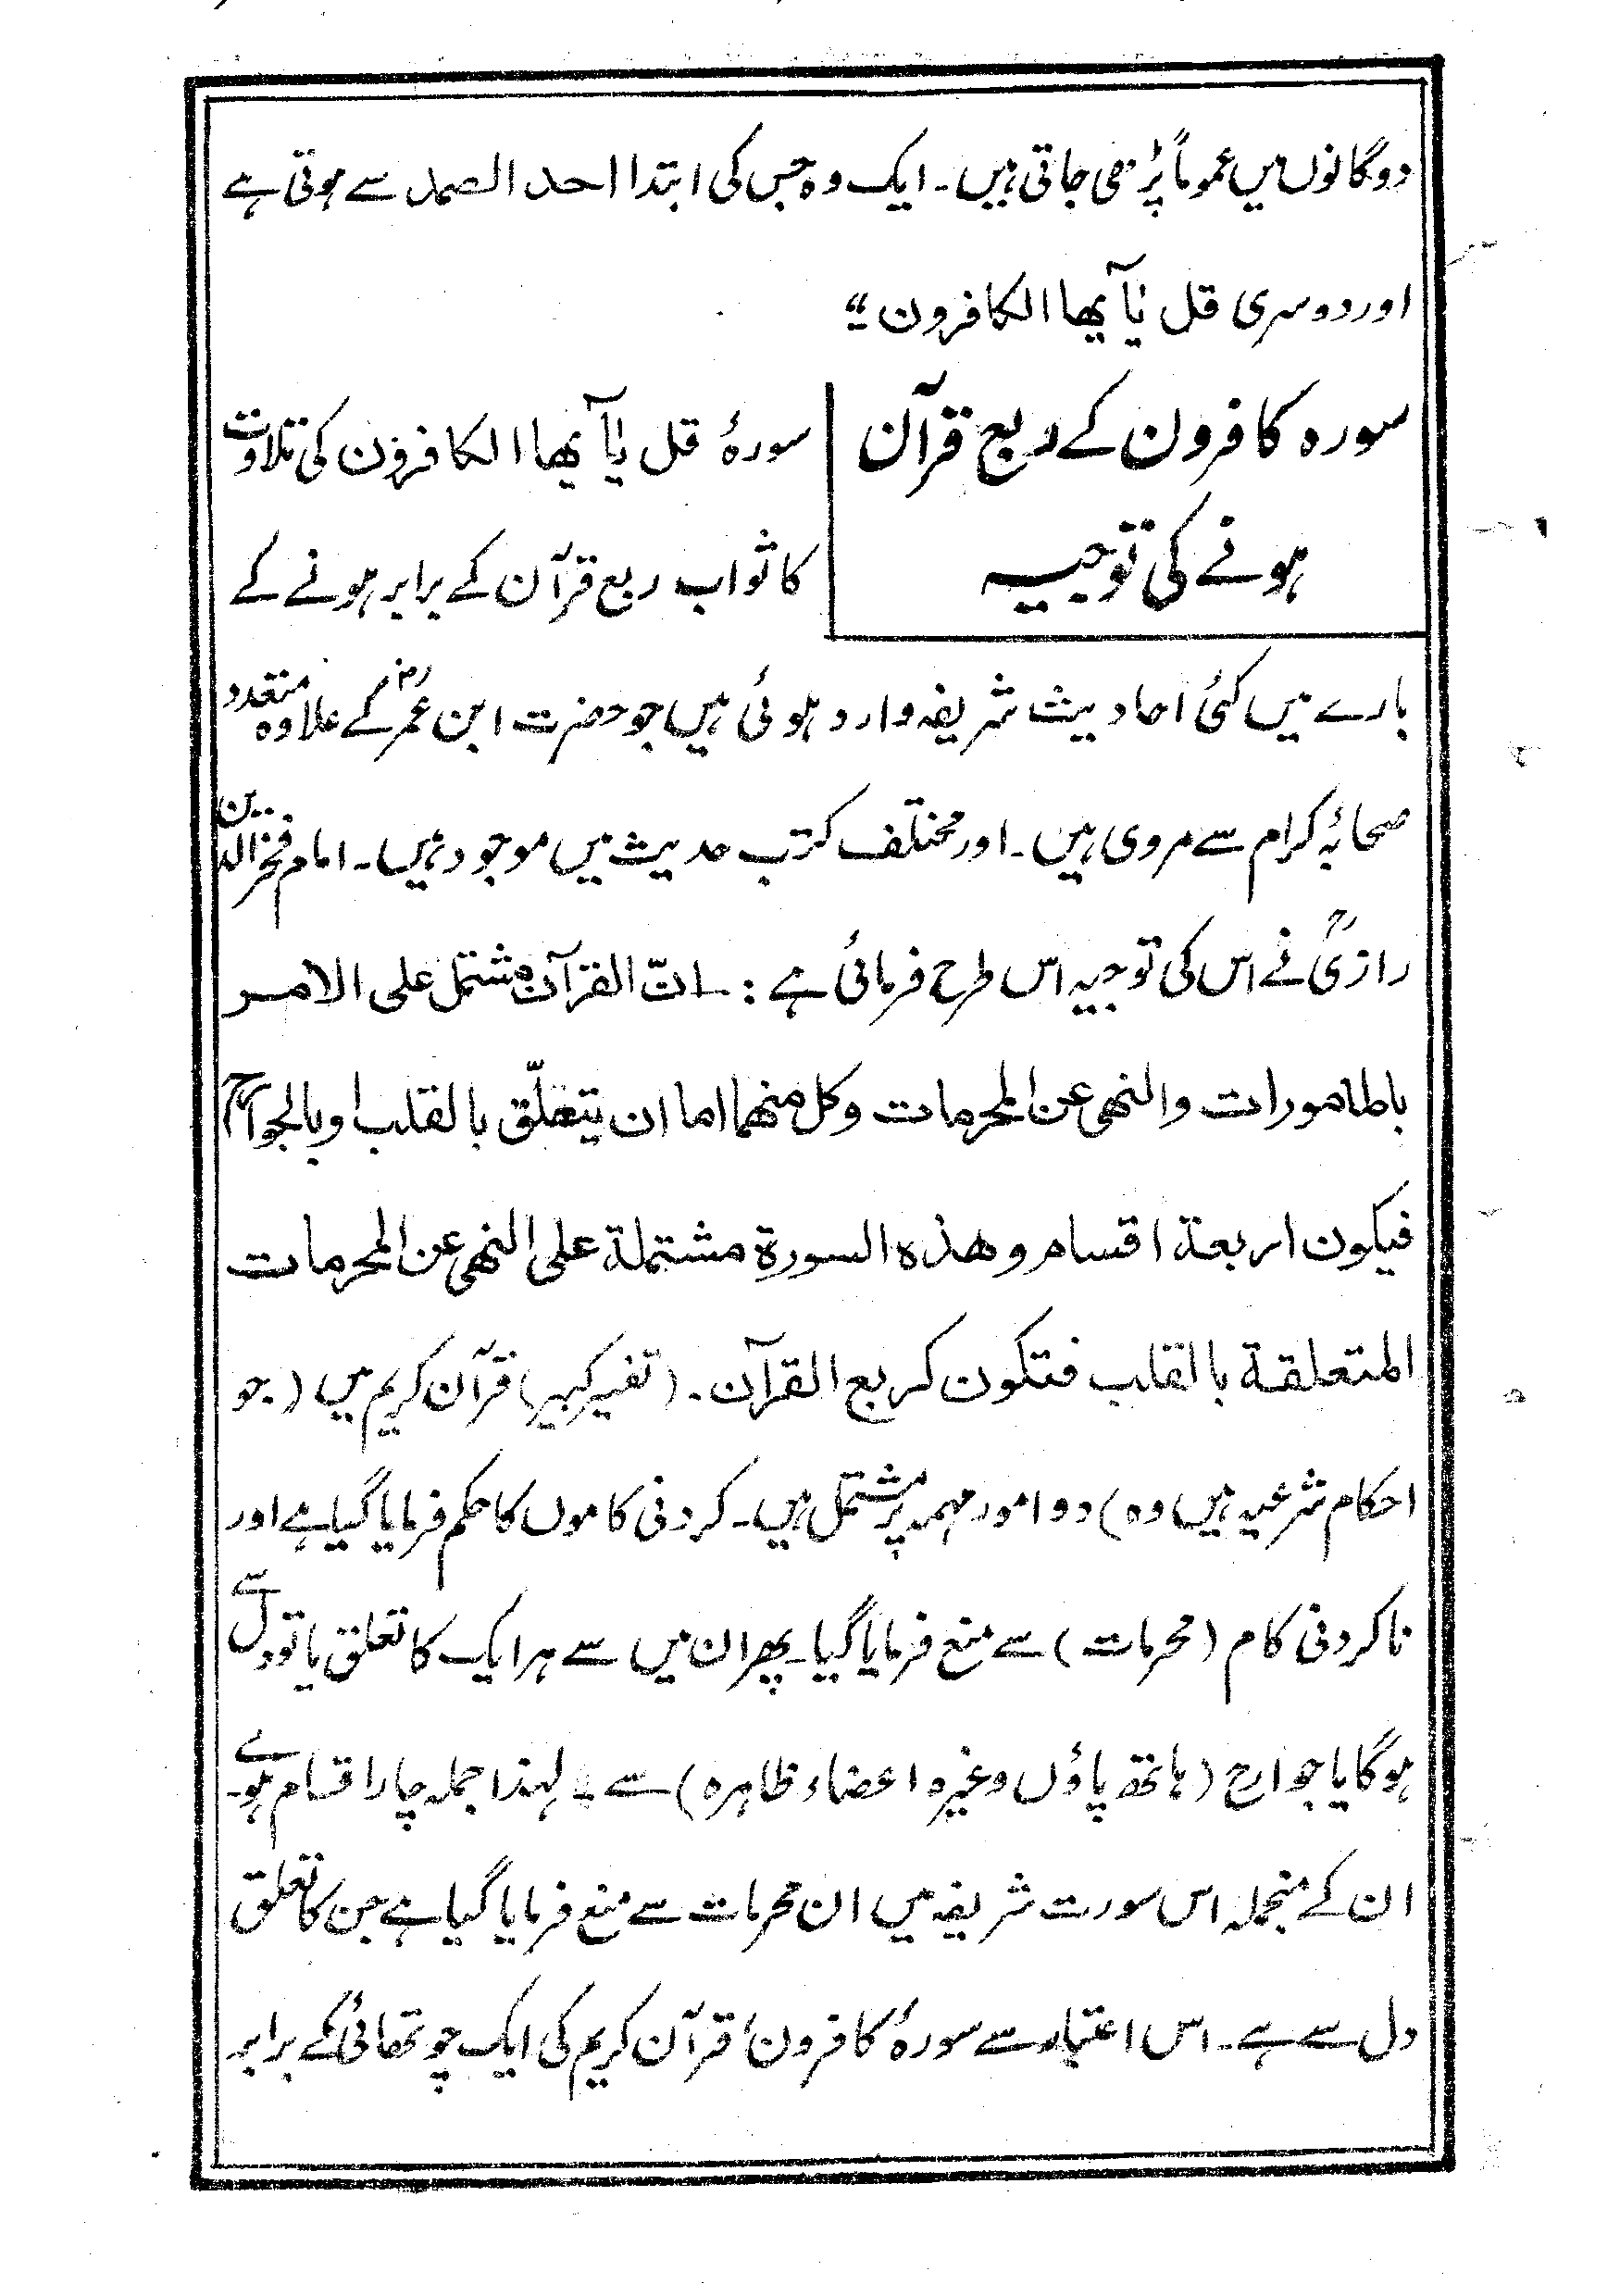 دوگانوں میں عموماً پڑھی جاتی ہیں۔ ایک وہ جس کی ابتدا احد الصمد سے ہوتی ہے
اور دوسری قل یٰآیھا الکافرون“
سورہ کافرون کے ربع قرآن
ہونے کی توجیہہ
سورۂ قل یٰآیھا الکافرون کی تلاوت
کا ثواب ربع قرآن کے برابر ہونے کے
بارے میں کئی احادیث شریفہ وارد ہوئی ہیں جو حضرت ابن عمرؓ کے علاوہ متعدد
صحابۂ کرام سے مروی ہیں۔ اور مختلف کتب حدیث میں موجود ہیں۔ امام فخر الدین
رازیؒ نے اس کی توجیہ اس طرح فرمائی ہے :۔ انّ القرآن مشتمل علی الامر
بالمامورات والنھی عن المحرمات وکل منھما اما ان یتعلّق بالقلب او بالجوارح
فیکون اربعة اقسام وھذہ السورة مشتملة علی النھی عن المحرمات
المتعلقة بالقلب فتکون کربع القرآن۔ (تفسیر کبیر) قرآن کریم میں (جو
احکام شرعیہ ہیں وہ) دو امور مہمہ پر مشتمل ہیں۔ کردنی کاموں کا حکم فرمایا گیا ہے اور
ناکردنی کام (محرمات) سے منع فرمایا گیا۔ پھر ان میں سے ہر ایک کا تعلق یا تو دل سے
ہوگا یا جوارح (ہاتھ پاؤں وغیرہ اعضاء ظاہرہ) سے۔ لہٰذا جملہ چار اقسام ہوے۔
ان کے منجملہ اس سورت شریفہ میں ان محرمات سے منع فرمایا گیا ہے جن کا تعلق
دل سے ہے۔ اس اعتبار سے سورۂ کافرون، قرآن کریم کی ایک چوتھائی کے برابر